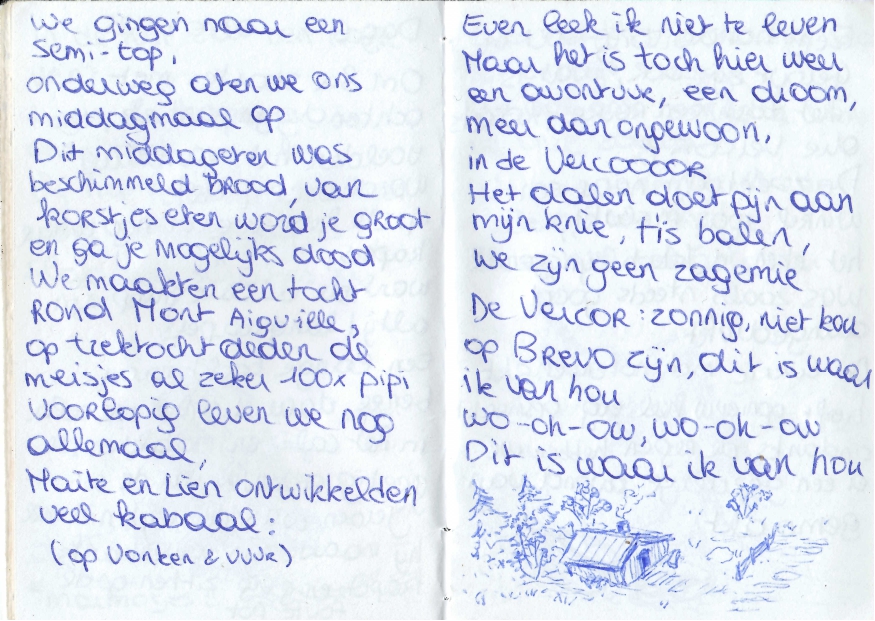 We gingen naar een
semi-top,
onderweg aten we ons
middagmaal op
Dit middageten was
beschimmeld brood, van
korstjes eten word je groot
en ga je mogelijks dood
We maakten een tocht
rond Mont Aiguille,
op trektocht deden de
meisjes al zeker 100x pipi
Voorlopig leven we nog
allemaal,
Maite en Lien ontwikkelden
veel kabaal:
(op Vonken & vuur)
Even leek ik niet te leven
Maar het is toch hier weer
een avontuur, een droom,
meer dan ongewoon,
in de Vercoooor
Het dalen doet pijn aan
mijn knie, tis balen,
we zijn geen zagemie
De Vercor: zonnig, niet kou
op BREVO zijn, dit is waar
ik van hou
wo-oh-ow, wo-oh-ow
Dit is waar ik van hou